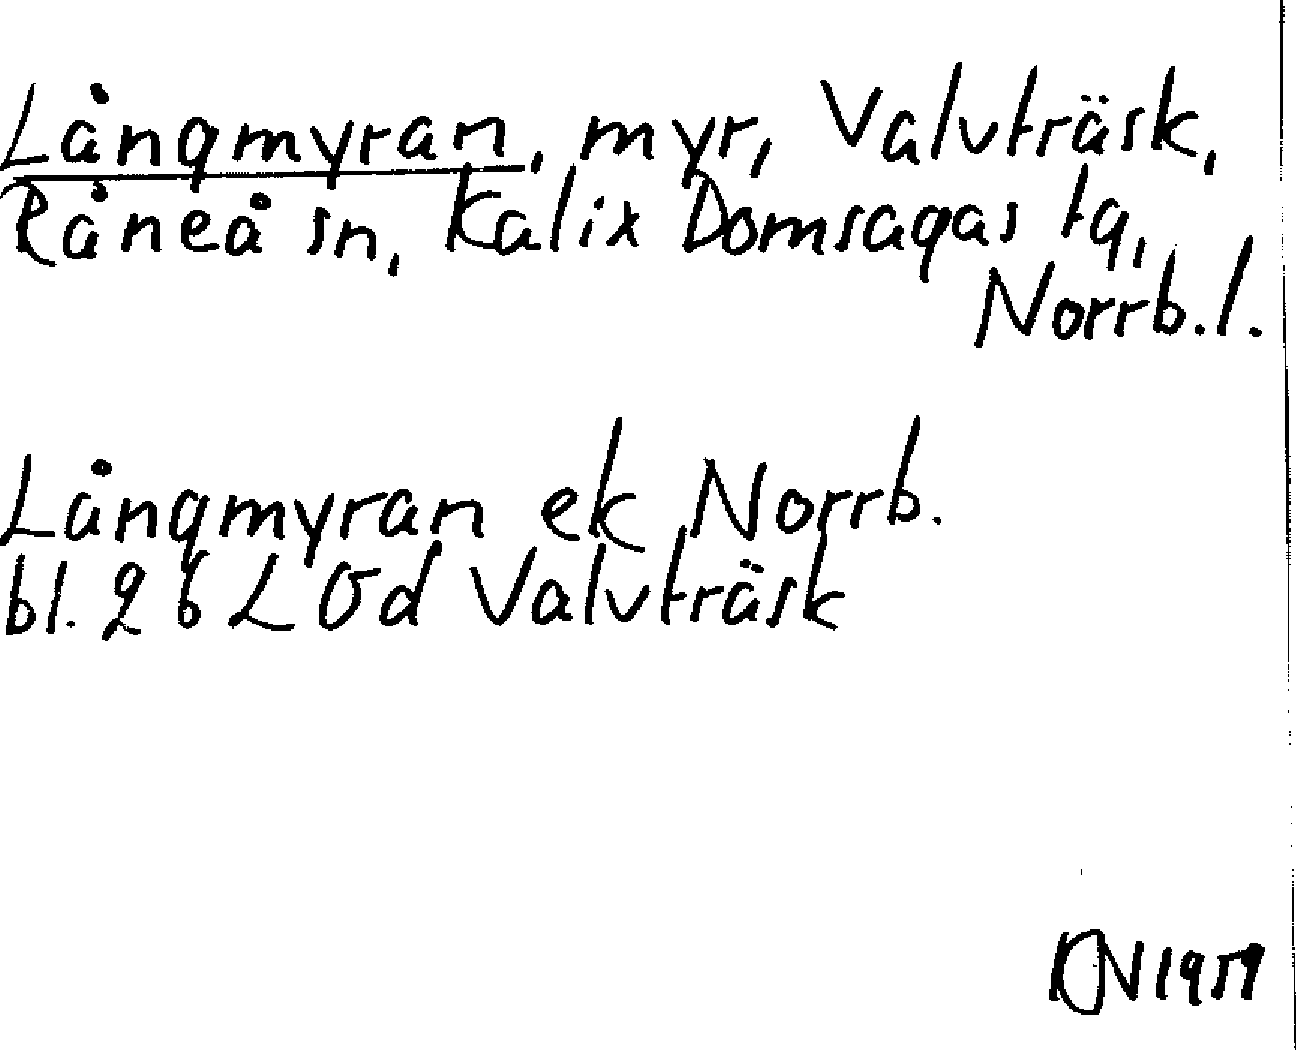 Långmyran, myr, Valvträsk,
Råneå sn, Kalix Domsagas tg,
Norrb. l.
Långmyran ek Norrb.
bl. 26 L Od Valvträsk